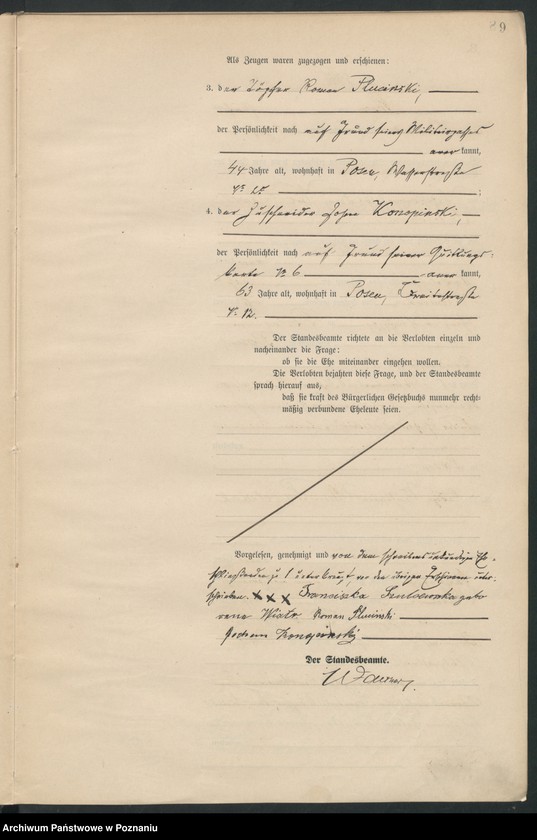 89
Als Zeugen waren zugezogen und erschienen:
3. der Töpfer Roman Plucinski,
der Persönlichkeit nach auf Grund seines Militärpasses
aner kannt,
44 Jahre alt, wohnhaft in Posen, Wasserstraße
4. der Zuschneider Konopinski,
der Persönlichkeit nach auf Grund seiner Quittungs-
karte № 6 aner kannt,
63 Jahre alt, wohnhaft in Posen, Breitestraße
№ 12.
Der Standesbeamte richtete an die Verlobten einzeln und
nacheinander die Frage:
ob sie die Ehe miteinander eingehen wollen.
Die Verlobten bejahten diese Frage, und der Standesbeamte
sprach hierauf aus,
daß sie kraft des Bürgerlichen Gesetzbuchs nunmehr recht-
mäßig verbundene Eheleute seien.
Vorgelesen, genehmigt und von dem schreibensunkundigen Ehe-
schließenden zu 1 unterkreuzt, von den übrigen Personen unter-
schrieben. x x x Franciszka gebo
rena Wiatr Roman Plucinski
Konopinski
Der Standesbeamte.